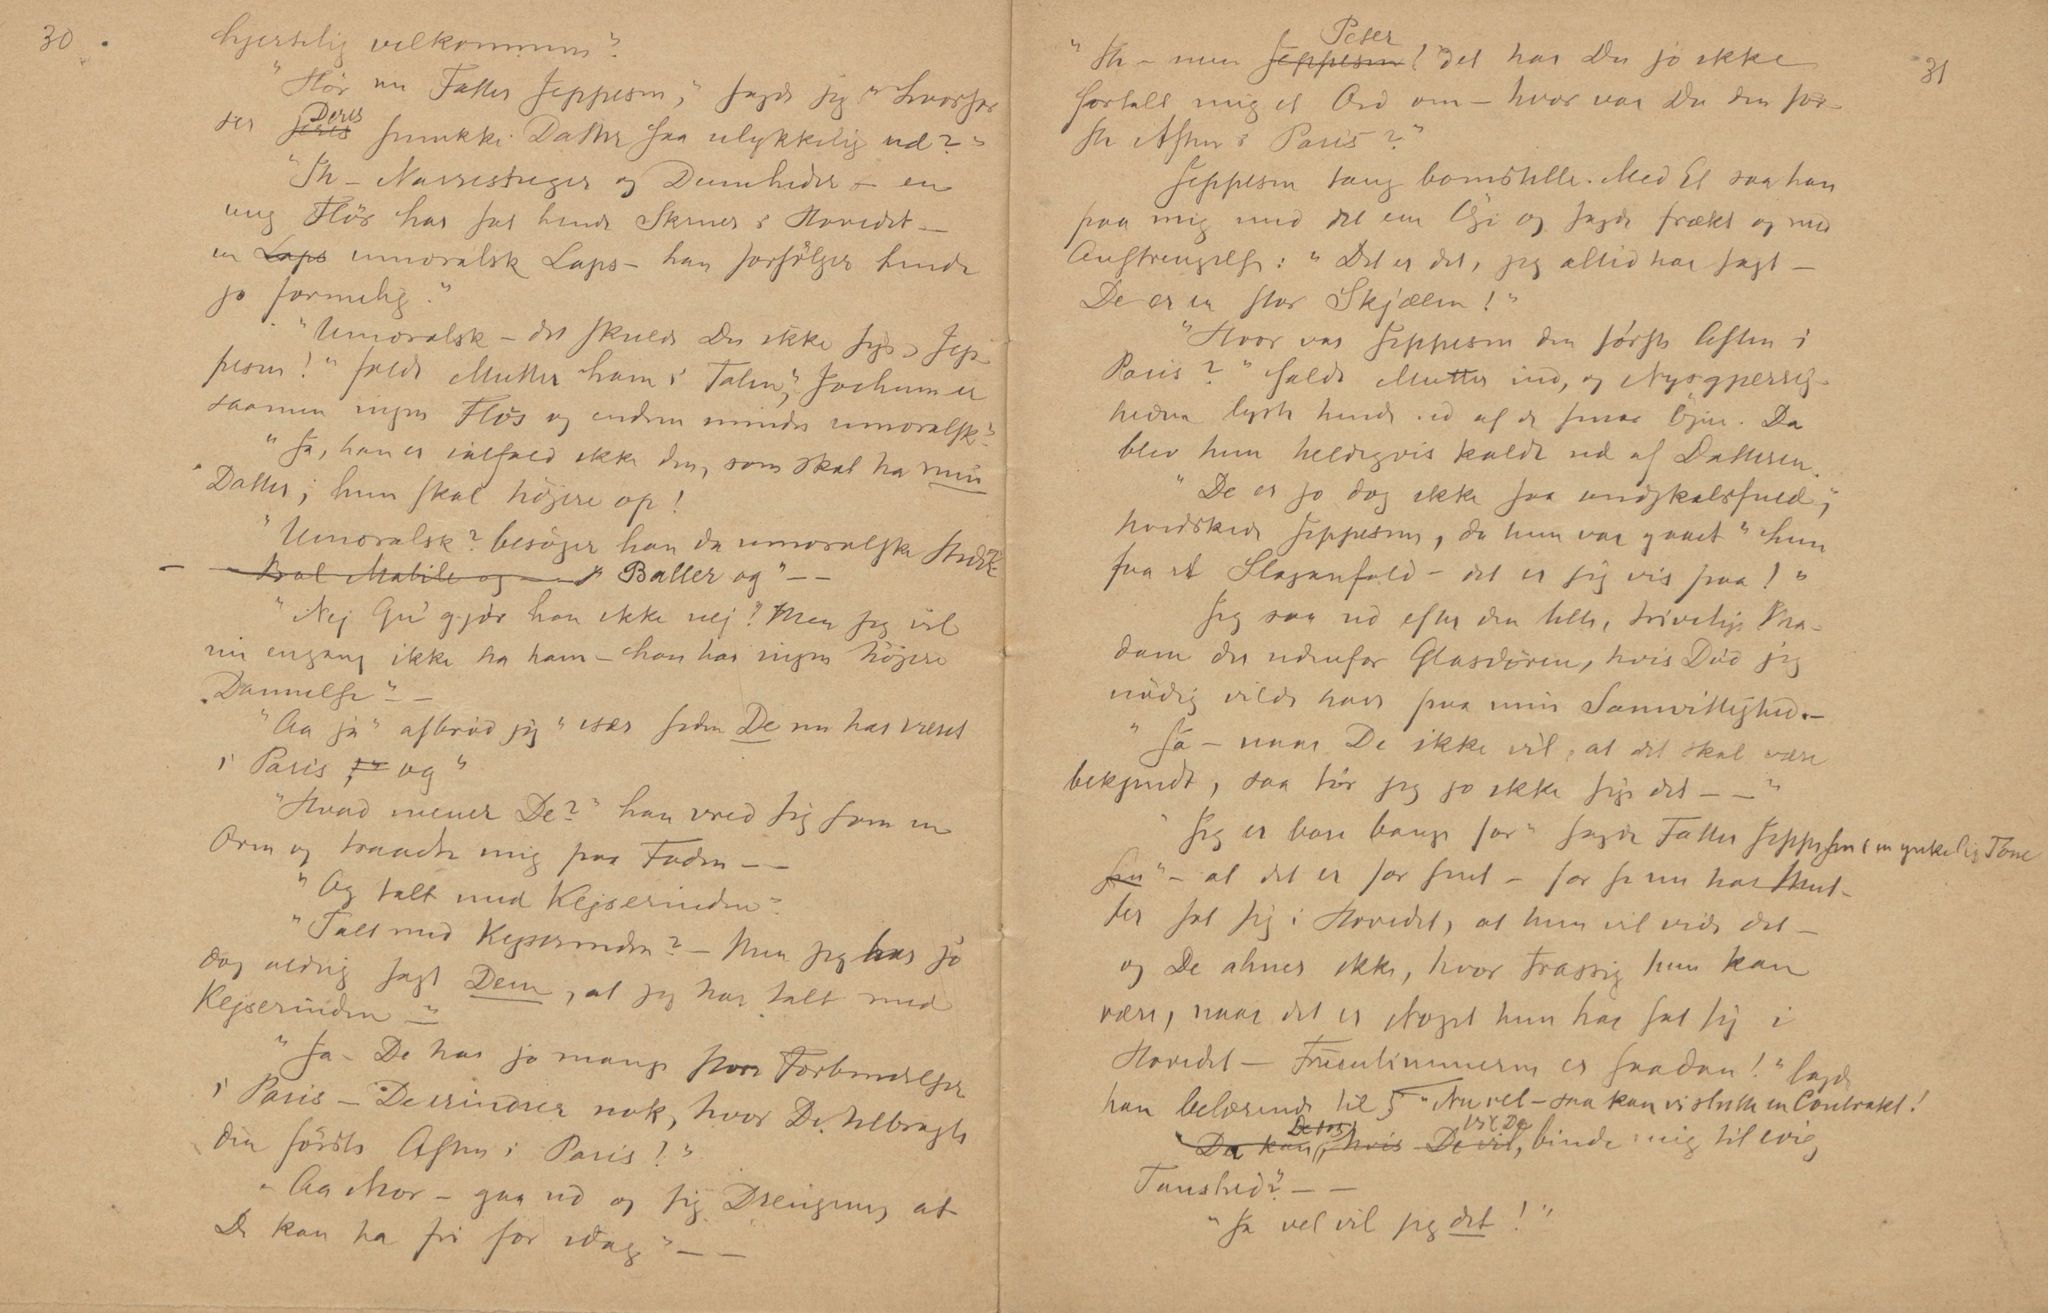 30.
hjertelig velkommen"
"Hör nu Fatter Jeppesen," sagde jeg "hvorfor
ser jeres Deres smukke Datter saa ulykkelig ud?"
"Jh - Narrestreger og Dumheder - en
ung Flös har sat hende Skruer i Hovedet -
en Laps umoralsk Laps - han forfölger hende
jo formelig."
"Umoralsk - det skulde Du ikke sige, Jep-
pesen!" faldt Mutter ham i Talen," Jochum er
saamen ingen Flös og endnu mindre umoralsk"
"Ja, han er ialfald ikke den, som skal ha min
Datter; hun skal höjere op!
"Umoralsk? besöger han da umoralske Steder
Bal Mabile og Baller og" --
"Nej Gu' gjör han ikke nej! Men jeg vil
nu engang ikke ha ham - han har ingen höjere
Dannelse" -
"Aa ja" afbröd jeg "især siden De nu har været
i Paris og"
"Hvad mener De?" han vred sig som en
Orm og traadte mig paa Foden --
"Og talt med Kejserinden"
"Talt med Kejserinden? - Men jeg har jo
dog aldrig sagt Dem, at jeg har talt med
Kejserinden"
"Ja - De har jo mange store Forbindelser
i Paris - De erindrer nok, hvor De tilbragte
den förste Aften i Paris!"
"Aa Mor - gaa ud og sig Drengene, at
De kan ha fri for idag" --
31
"Jh - men Jeppesen Peter! det har Du jo ikke
fortalt mig et Ord om - hvor var Du den för-
ste Aften i Paris?"
Jeppesen taug bomstille. Med Et saa han
paa mig med det ene Öje og sagde frækt og med
Anstrengelse: "Det er det, jeg altid har sagt -
De er en stor Skjælm!"
"Hvor var Jeppesen den förste Aften i
Paris?" faldt Mutter ind, og Nysgjerrig-
heden lyste hende ud af de smaa Öjne. Da
blev hun heldigvis kaldt ud af Datteren.
"De er jo dog ikke saa ondskabsfuld,"
hvidskede Jeppesen, da hun var gaaet "hun
faar et Slaganfald - det er jeg vis paa!"
Jeg saa ud efter den lille, trivelige Ma-
dam der udenfor Glasdören, hvis Död jeg
nödig vilde have paa min Samvittighed. -
"Ja - naar De ikke vil, at det skal være
bekjendt, saa tör jeg jo ikke sige det --"
"Jeg er bare bange for" sagde Fatter Jeppesen i en ynkelig Tone
sen "- at det er for sent - for se nu har Mut-
ter sat sig i Hovedet, at hun vil vide det -
og De ahner ikke, hvor trassig hun kan
være, naar det er Noget hun har sat sig i
Hovedet - Fruentimmerne er saadan!" sagde
han belærende til "Nuvel - saa kan vi slutte en Contrakt!
Da kan, hvis De vil, vil De binde mig til evig
Taushed?" --
"Ja vel vil jeg det!"